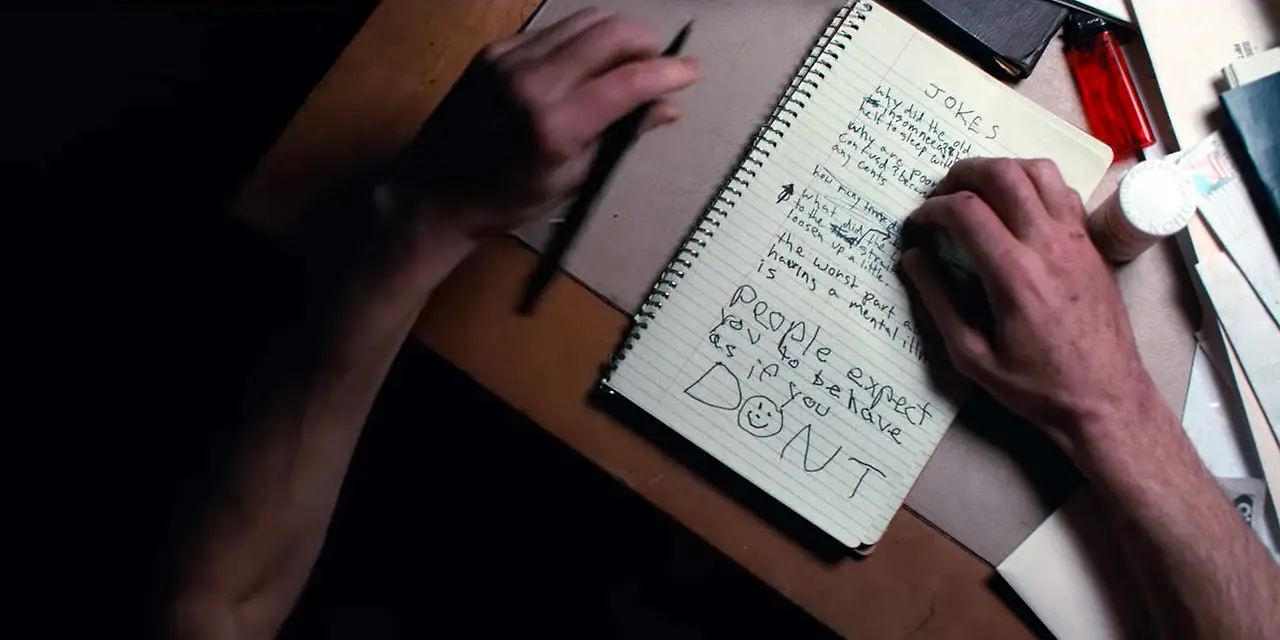 JOKES
Why did the old
insomneeac
help to sleep with
Why are poo
confused? becus
any cents
how many times
what did the
to the straw
loosen up a little.
the worst part a
having a mental illn
is
people expect
you to behave
as if you
DONT